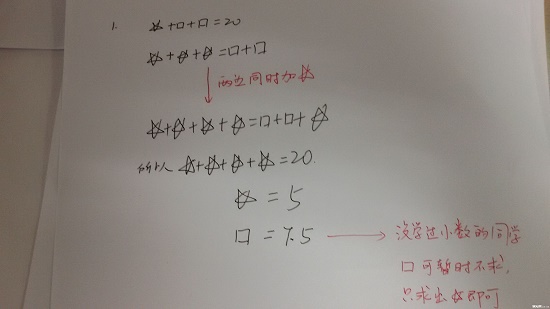 1. ☆+□+□=20
☆+☆+☆=□+□
↓ 两边同时加☆
☆+☆+☆+☆=□+□+☆
所以 ☆+☆+☆+☆=20.
☆=5
□=7.5 → 没学过小数的同学
□可暂时不求,
只求出☆即可